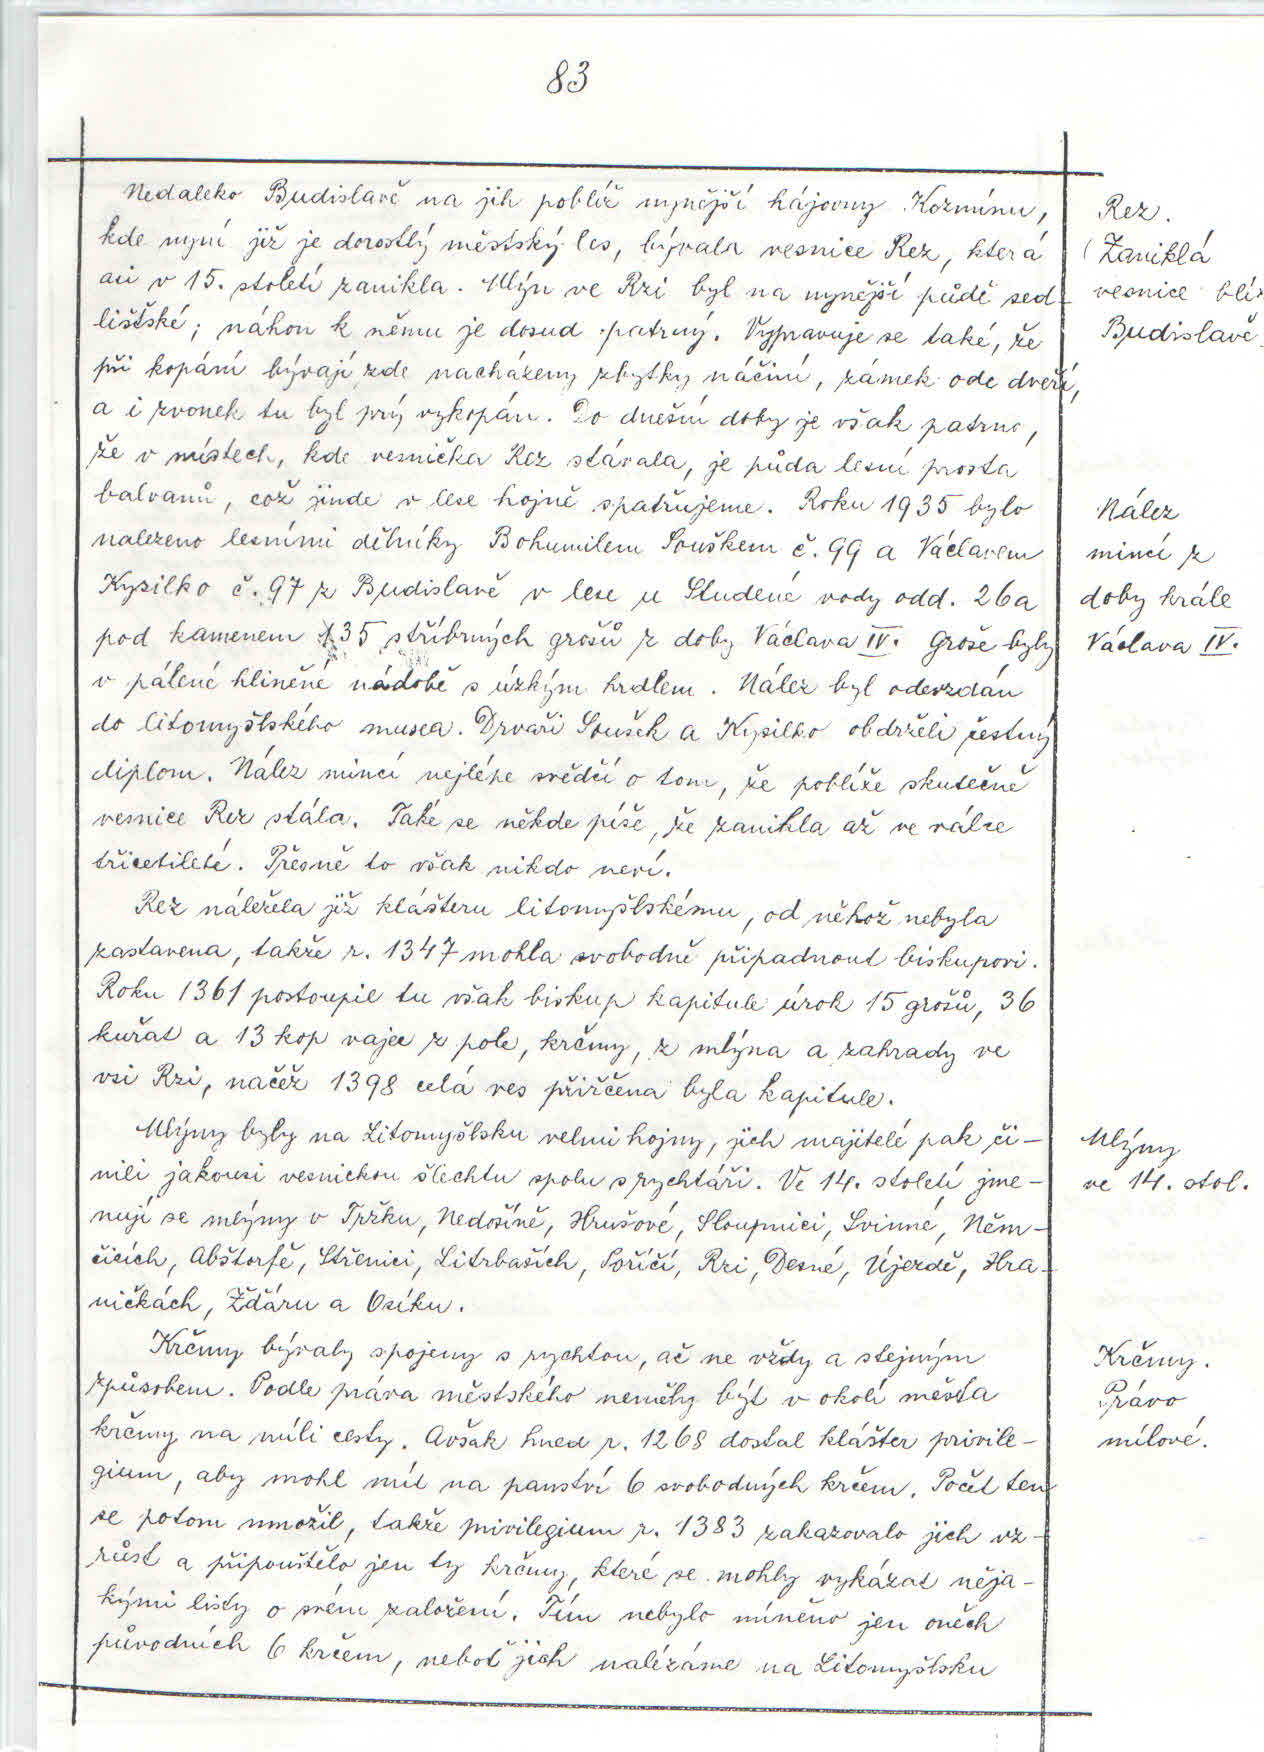 83
Nedaleko Budislavě na jih poblíž nynější hájovny Kozmínu,
kde nyní již je dorostlý městský les, bývala vesnice Rez, která
asi v 15. století zanikla. Mlýn ve Rzi byl na nynější půdě sed-
lištské; náhon k němu je dosud patrný. Vypravuje se také, že
při kopání bývají zde nacházeny zbytky náčiní, zámek ode dveří,
a i zvonek tu byl prý vykopán. Do dnešní doby je však patrno,
že v místech, kde vesnička Rez stávala, je půda lesní prosta
balvanů, což jinde v lese hojně spatřujeme. Roku 1935 bylo
nalezeno lesními dělníky Bohumilem Souškem č. 99 a Václavem
Kysilko č. 97 z Budislavě v lese u Studené vody odd. 26a
pod kamenem 35 stříbrných grošů z doby Václava IV. Groše byly
v pálené hliněné nádobě s úzkým hrdlem. Nález byl odevzdán
do litomyšlského musea. Drvaři Soušek a Kysilko obdrželi čestný
diplom. Nález mincí nejlépe svědčí o tom, že poblíže skutečně
vesnice Rez stála. Také se někde píše, že zanikla až ve válce
třicetileté. Přesně to však nikdo neví.
Rez náležela již klášteru litomyšlskému, od něhož nebyla
zastavena, takže r. 1347 mohla svobodně připadnout biskupovi.
Roku 1361 postoupil tu však biskup kapitule úrok 15 grošů, 36
kuřat a 13 kop vajec z pole, krčmy, z mlýna a zahrady ve
vsi Rzi, načež 1398 celá ves přiřčena byla kapitule.
Mlýny byly na Litomyšlsku velmi hojny, jich majitelé pak či-
nili jakousi vesnickou šlechtu spolu s rychtáři. Ve 14. století jme-
nují se mlýny v Tržku, Nedošíně, Hrušové, Sloupnici, Svinné, Něm-
čicích, Abštorfě, Střenici, Litrbaších, Poříčí, Rzi, Desné, Újezdě, Hra-
ničkách, Žďáru a Osíku.
Krčmy bývaly spojeny s rychtou, ač ne vždy a stejným
způsobem. Podle práva městského neměly být v okolí města
krčmy na míli cesty. Avšak hned r. 1268 dostal klášter privile-
gium, aby mohl mít na panství 6 svobodných krčem. Počet ten
se potom množil, takže privilegium r. 1383 zakazovalo jich vz-
růst a připouštělo jen ty krčmy, které se mohly vykázat něja-
kými listy o svém založení. Tím nebylo míněno jen oněch
původních 6 krčem, neboť jich nalézáme na Litomyšlsku
Rez.
(Zaniklá
vesnice blíz
Budislavě.
Nález
mincí z
doby krále
Václava IV.
Mlýny
ve 14. stol.
Krčmy.
Právo
mílové.